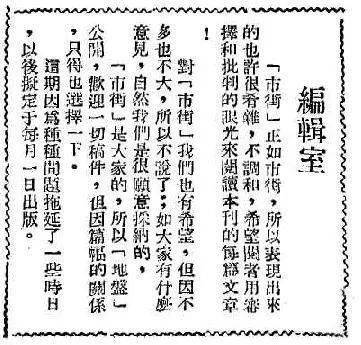 編輯室
「市街」正如市街，所以表現出來
的也許很脊雜，不調和，希望閱者用審
擇和批判的眼光來閱讀本刊的每篇文章
！
對「市街」我們也有希望，但因不
多也不大，所以不說了；如大家有什麼
意見，自然我們是很願意採納的，
「市街」是大家的，所以「地盤」
公開，歡迎一切稿件，但因篇幅的關係
，只得也選擇一下。
這期因爲種種問題拖延了一些時日
，以後擬定于每月一日出版。